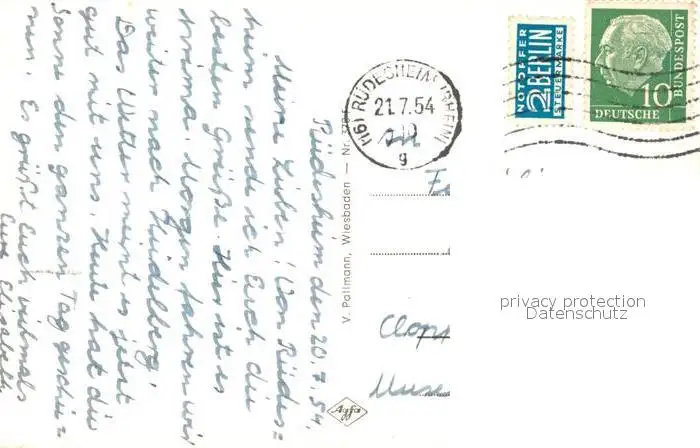 Rüdesheim, den 20.7.54.
Meine Lieben! Von Rüdes=
heim sende ich Euch die
besten Grüße. Hier ist es
prima. Morgen fahren wir
weiter nach Heidelberg.
Das Wetter meint es jetzt
gut mit uns. Heute hat die
Sonne den ganzen Tag geschie=
nen. Es grüßt Euch vielmals
Eure Elisabeth
V. Pallmann, Wiesbaden — Nr.
Agfa
(16) RÜDESHEIM (RHEIN)
21.7.54
g
NOTOPFER
2 BERLIN
STEUERMARKE
10
DEUTSCHE
BUNDESPOST
privacy protection
Datenschutz